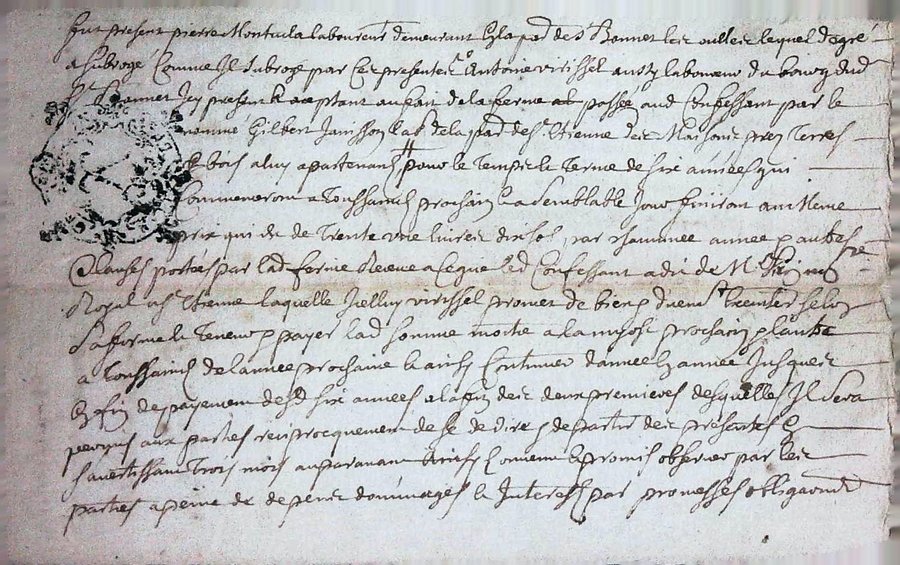 fut present pierre Montucla laboureur demeurant en la par de St Bonnet les oulles lequel de gré
a subrogé Comme Il subroge par Ces presentes a Antoine virissel aussy laboureur du bourg dud
St Bonnet Icy present & acceptant au bail de la ferme passée aud Confessant par le
nommé Gilbert Janisson lab de la par de St Etienne des Maisons prez Terres
& bois a luy apartenant pour le temps & terme de six années qui
Commenceront a Toussainct prochain & a semblable Jour finiront au Meme
prix qui est de Trente une livres dix sols par chacune année & autres
Clauses portées par lad ferme Receue a Ce que led Confessant a dit de Me No
Royal a St Etienne laquelle Icelluy virissel promet de bien & duement selon
sa forme & teneur & payer lad somme moitié a la my aoust prochain & l'autre
a Toussainct de l'année prochaine & ainsy Continuer d'année en année Jusques
en fin de payement desd six années a la fin des deux premieres desquelles Il sera
permis aux parties reciprocquement de se dedire & departir des presentes en
s'avertissant Trois mois auparavant Ainsy Convenu & promis observer par les
parties a peine de despens dommages & Interests par promesses obligaons